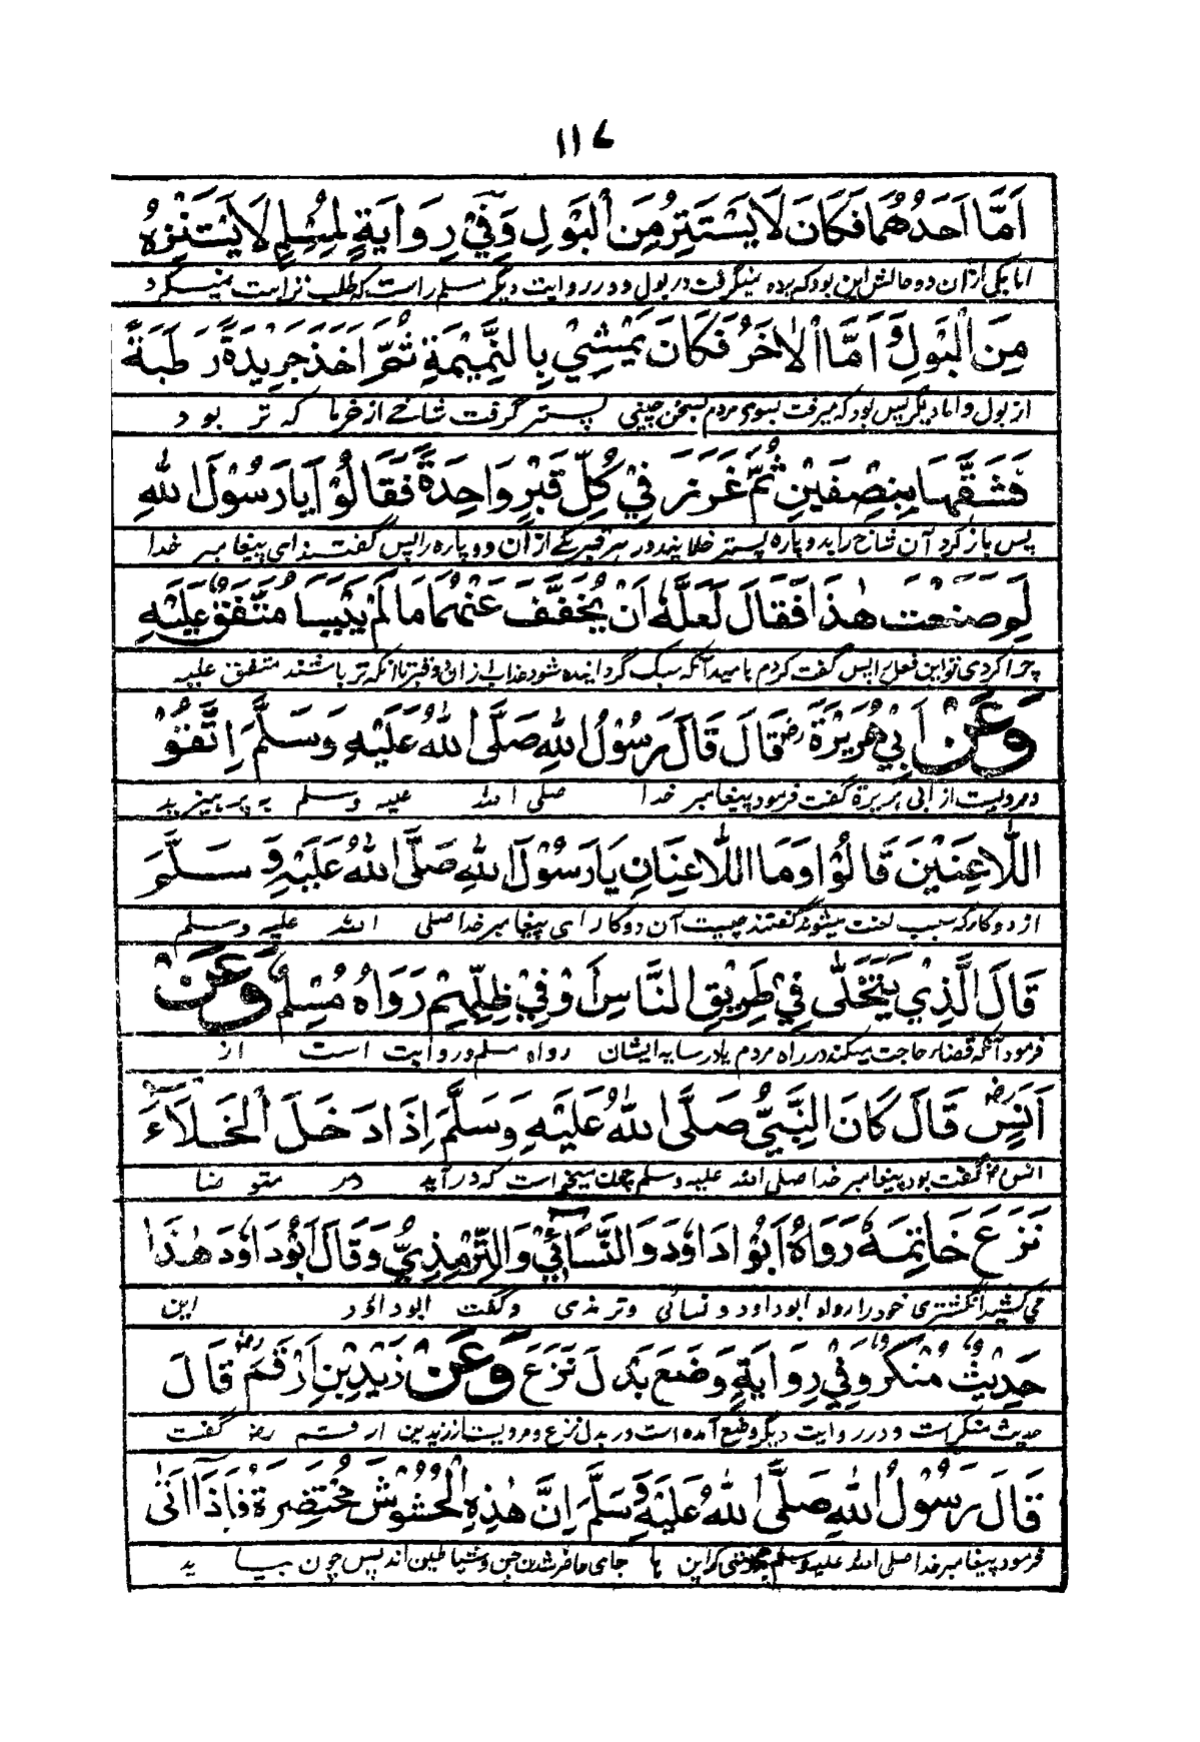 ۱۱۷
اَمَّا اَحَدُهُمَا فَكَانَ لَا يَسْتَتِرُ مِنَ الْبَوْلِ وَفِيْ رِوَايَةٍ لِمُسْلِمٍ لَا يَسْتَنْزِهُ
اما یکی ازان دو حالش این بود که پرده نمیگرفت در بول و در روایت دیگر مسلم راست که طلب نزاهت نمیکرد
مِنَ الْبَوْلِ وَاَمَّا الْاٰخَرُ فَكَانَ يَمْشِيْ بِالنَّمِيْمَةِ ثُمَّ اَخَذَ جَرِيْدَةً رَطْبَةً
از بول و اما دیگر پس بود که میرفت بسوی مردم بسخن چینی پستر گرفت شاخے از خرما که تر بود
فَشَقَّهَا بِنِصْفَيْنِ ثُمَّ غَرَزَ فِيْ كُلِّ قَبْرٍ وَاحِدَةً فَقَالُوْا يَا رَسُوْلَ اللهِ
پس باز کرد آن شاخ را بدو پاره پستر خلانید در هر قبر یکے از آن دو پاره را پس گفتند ای پیغامبر خدا
لِمَ صَنَعْتَ هٰذَا فَقَالَ لَعَلَّهٗ اَنْ يُخَفَّفَ عَنْهُمَا مَا لَمْ يَيْبَسَا مُتَّفَقٌ عَلَيْهِ
چرا کردی تو این فعل را پس گفت کردم بامید آنکه سبک گردانیده شود عذاب ازان دو قبر تا آنکه تر باشند متفق علیه
وَعَنْ اَبِيْ هُرَيْرَةَ رض قَالَ قَالَ رَسُوْلُ اللهِ صَلَّى اللهُ عَلَيْهِ وَسَلَّمَ اِتَّقُوْا
ومرویست از ابی هریرة گفت فرمود پیغامبر خدا صلی الله علیه وسلم بپرهیزید
اللَّاعِنَيْنِ قَالُوْا وَمَا اللَّاعِنَانِ يَا رَسُوْلَ اللهِ صَلَّى اللهُ عَلَيْهِ وَسَلَّمَ
از دو کار که سبب لعنت میشوند گفتند چیست آن دو کار ای پیغامبر خدا صلی الله علیه وسلم
قَالَ الَّذِيْ يَتَخَلّٰى فِيْ طَرِيْقِ النَّاسِ اَوْ فِيْ ظِلِّهِمْ رَوَاهُ مُسْلِمٌ وَعَنْ
فرمود آنکه قضاء حاجت میکند در راه مردم یا در سایه ایشان رواه مسلم وروایت است از
اَنَسٍ رض قَالَ كَانَ النَّبِيُّ صَلَّى اللهُ عَلَيْهِ وَسَلَّمَ اِذَا دَخَلَ الْخَلَاءَ
انس رض گفت بود پیغامبر خدا صلی الله علیه وسلم چون میخواست که در آید در متوضا
نَزَعَ خَاتِمَهٗ رَوَاهُ اَبُوْ دَاوٗدَ وَالنَّسَائِيُّ وَالتِّرْمِذِيُّ وَقَالَ اَبُوْ دَاوٗدَ هٰذَا
می کشید انگشتری خود را رواه ابوداود و نسائی وترمذی وگفت ابوداؤد این
حَدِيْثٌ مُنْكَرٌ وَفِيْ رِوَايَةٍ وَضَعَ بَدَلَ نَزَعَ وَعَنْ زَيْدِ بْنِ اَرْقَمَ رض قَالَ
حدیث منکر است و در روایت دیگر وضع آمده است در بدل نزع ومرویست از زید بن ارقم رض گفت
قَالَ رَسُوْلُ اللهِ صَلَّى اللهُ عَلَيْهِ وَسَلَّمَ اِنَّ هٰذِهِ الْحُشُوْشَ مُحْتَضَرَةٌ فَاِذَا اَتٰى
فرمود پیغامبر خدا صلی الله علیه وسلم این ها جای حاضر شدن جن و شیاطین اند پس چون بیاید